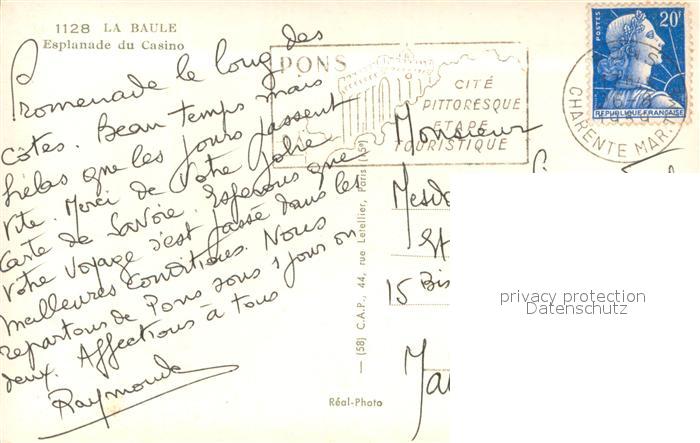 1128 LA BAULE
Esplanade du Casino
Promenade le long des
côtes. Beau temps mais
hélas que les jours passent
vite. Merci de votre jolie
carte de Savoie. Espérons que
votre voyage s'est passé dans les
meilleures conditions. Nous
repartons de Pons sous 1 jour ou
deux. Affections à tous
Raymonde
PONS
CITÉ
PITTORESQUE
ETAPE
TOURISTIQUE
POSTES
20F
REPUBLIQUE FRANÇAISE
CHARENTE MAR.
Monsieur
15 Bis
— (58) C.A.P., 44, rue Letellier, Paris (15e)
Réal-Photo
privacy protection
Datenschutz